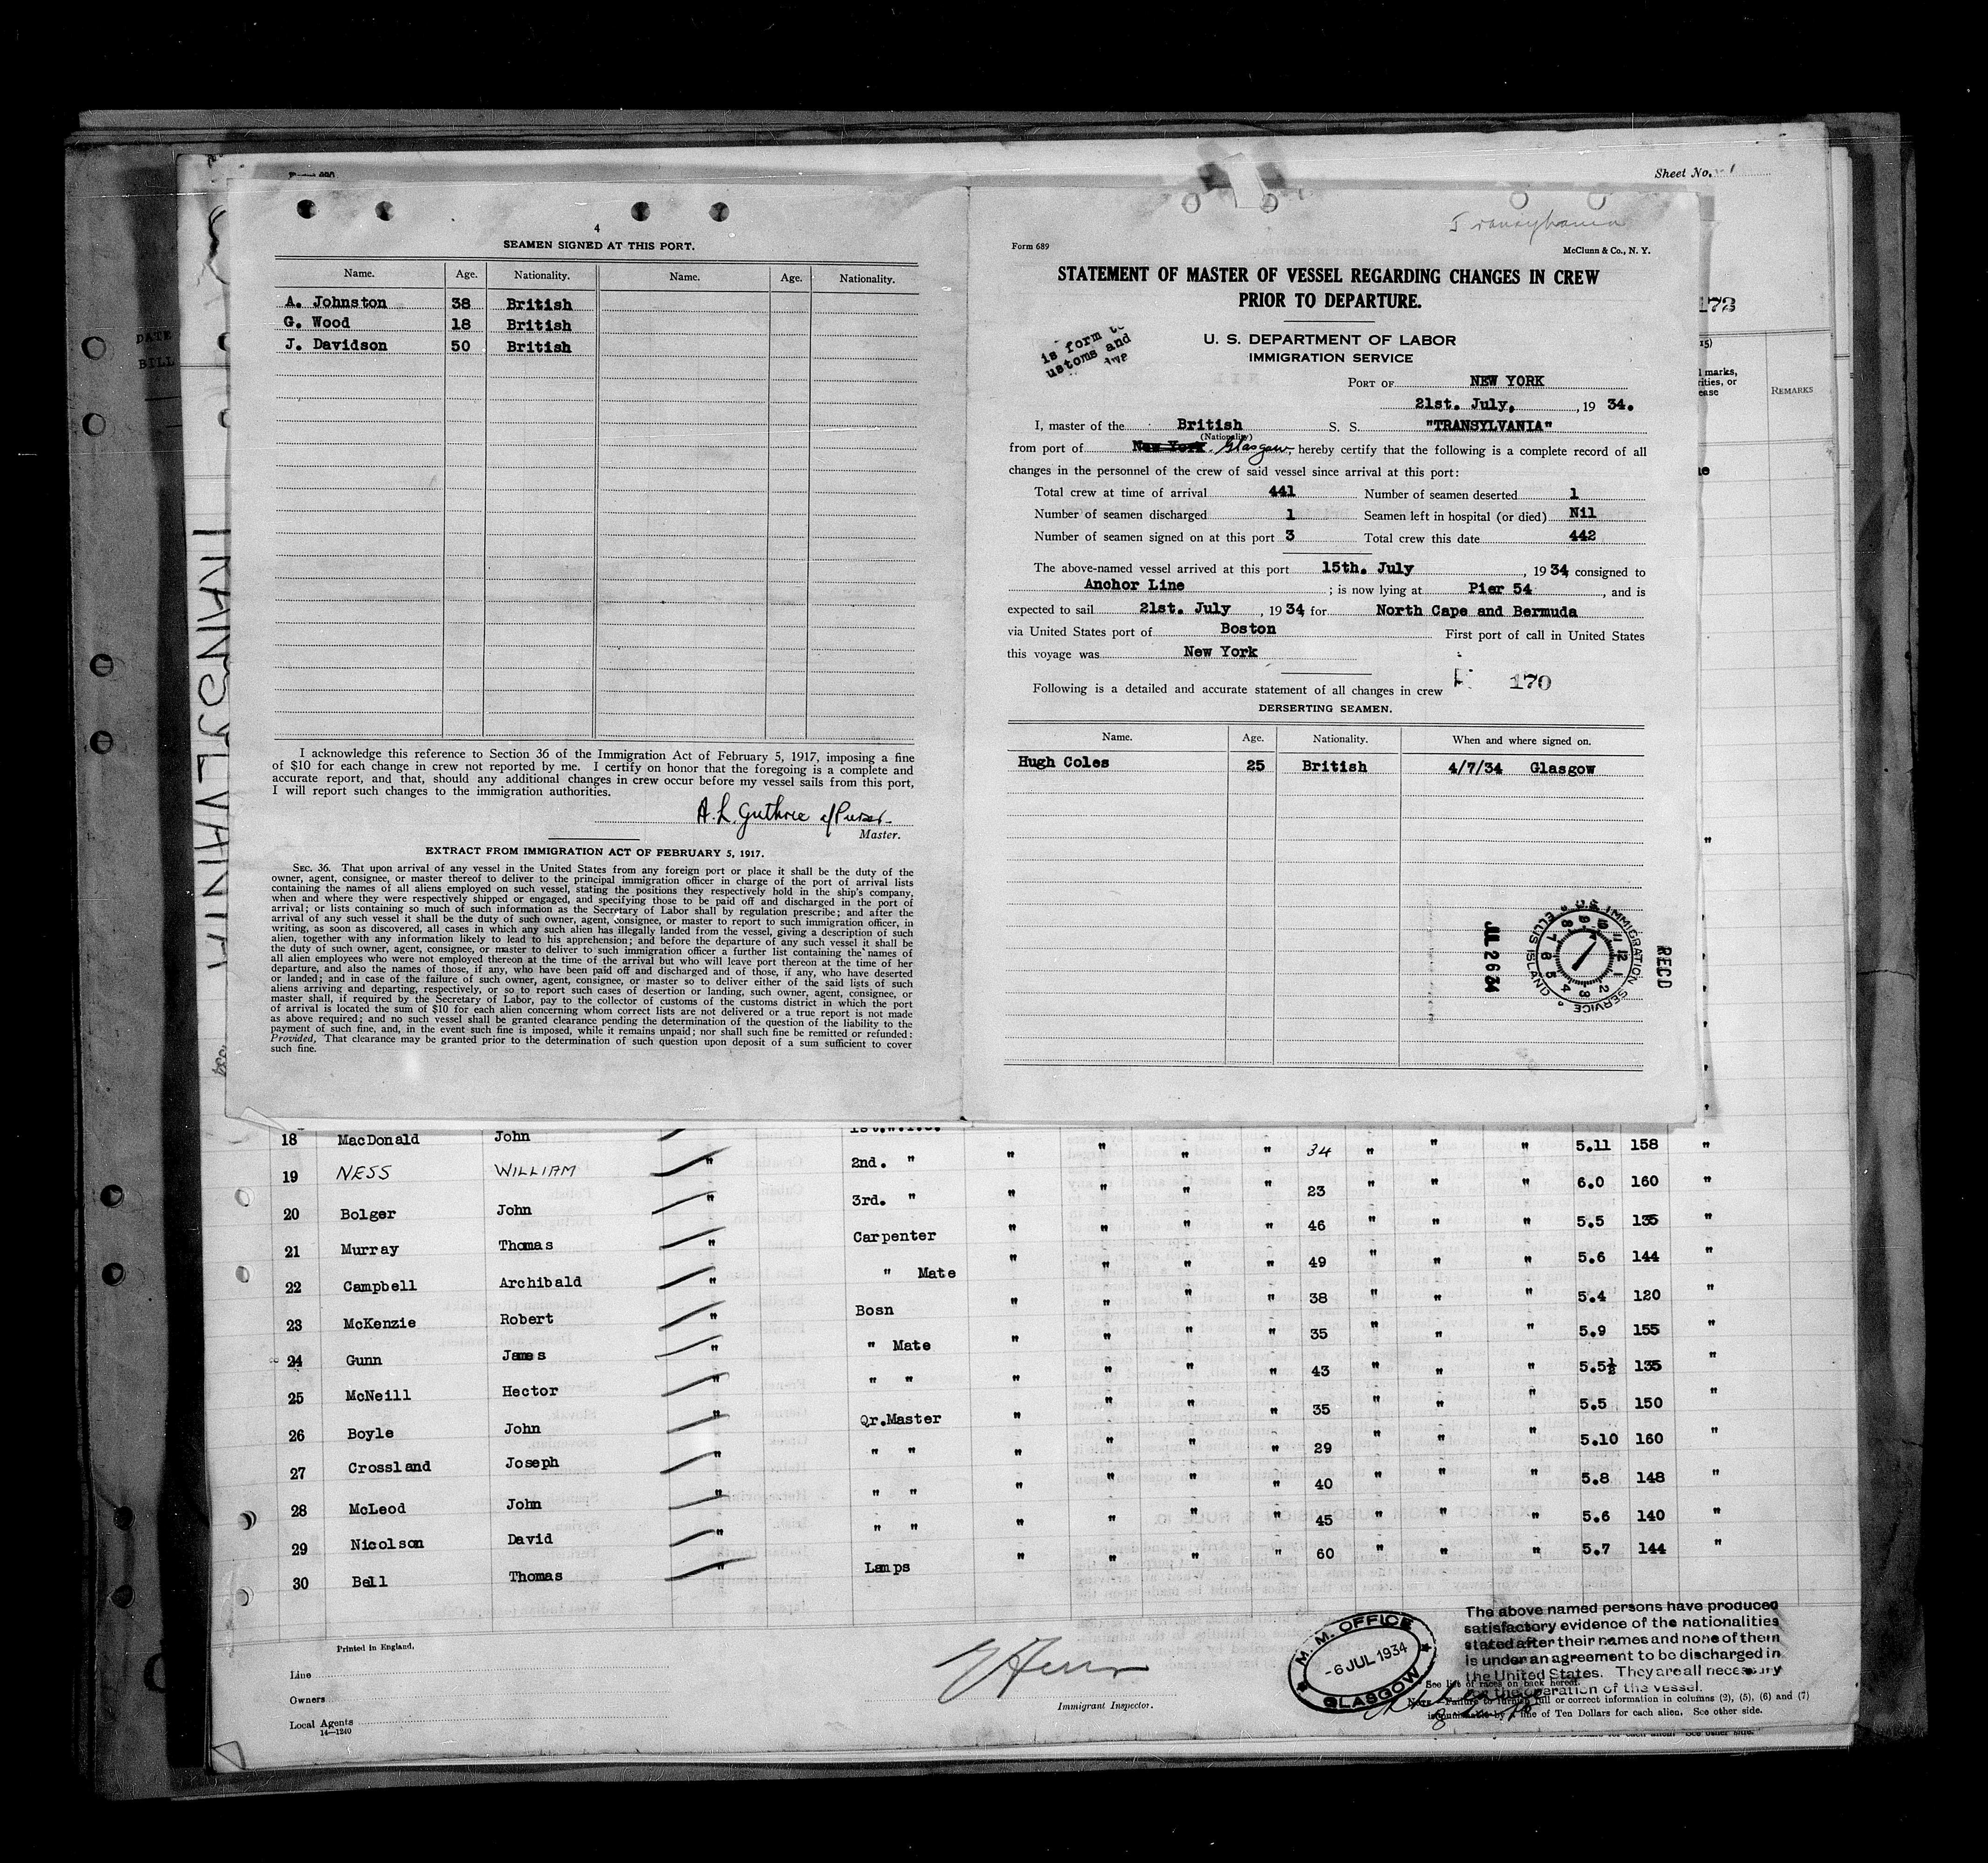 Sheet No. 1
4
SEAMEN SIGNED AT THIS PORT.
Name. Age. Nationality. Name. Age. Nationality.
A. Johnston 38 British
G. Wood 18 British
J. Davidson 50 British
I acknowledge this reference to Section 36 of the Immigration Act of February 5, 1917, imposing a fine
of $10 for each change in crew not reported by me. I certify on honor that the foregoing is a complete and
accurate report, and that, should any additional changes in crew occur before my vessel sails from this port,
I will report such changes to the immigration authorities.
A. L. Guthrie a/Purser.
Master.
EXTRACT FROM IMMIGRATION ACT OF FEBRUARY 5, 1917.
SEC. 36. That upon arrival of any vessel in the United States from any foreign port or place it shall be the duty of the
owner, agent, consignee, or master thereof to deliver to the principal immigration officer in charge of the port of arrival lists
containing the names of all aliens employed on such vessel, stating the positions they respectively hold in the ship's company,
when and where they were respectively shipped or engaged, and specifying those to be paid off and discharged in the port of
arrival; or lists containing so much of such information as the Secretary of Labor shall by regulation prescribe; and after the
arrival of any such vessel it shall be the duty of such owner, agent, consignee, or master to report to such immigration officer, in
writing, as soon as discovered, all cases in which any such alien has illegally landed from the vessel, giving a description of such
alien, together with any information likely to lead to his apprehension; and before the departure of any such vessel it shall be
the duty of such owner, agent, consignee, or master to deliver to such immigration officer a further list containing the names of
all alien employees who were not employed thereon at the time of the arrival but who will leave port thereon at the time of her
departure, and also the names of those, if any, who have been paid off and discharged and of those, if any, who have deserted
or landed; and in case of the failure of such owner, agent, consignee, or master so to deliver either of the said lists of such
aliens arriving and departing, respectively, or so to report such cases of desertion or landing, such owner, agent, consignee, or
master shall, if required by the Secretary of Labor, pay to the collector of customs of the customs district in which the port
of arrival is located the sum of $10 for each alien concerning whom correct lists are not delivered or a true report is not made
as above required; and no such vessel shall be granted clearance pending the determination of the question of the liability to the
payment of such fine, and, in the event such fine is imposed, while it remains unpaid; nor shall such fine be remitted or refunded:
Provided, That clearance may be granted prior to the determination of such question upon deposit of a sum sufficient to cover
such fine.
Transylvania
Form 689 McClunn & Co., N. Y.
STATEMENT OF MASTER OF VESSEL REGARDING CHANGES IN CREW
PRIOR TO DEPARTURE.
is form to
ustoms and
U. S. DEPARTMENT OF LABOR
IMMIGRATION SERVICE
PORT OF NEW YORK
21st. July, , 19 34.
I, master of the British S. S. "TRANSYLVANIA"
(Nationality)
from port of New York. Glasgow, hereby certify that the following is a complete record of all
changes in the personnel of the crew of said vessel since arrival at this port:
Total crew at time of arrival 441 Number of seamen deserted 1
Number of seamen discharged 1 Seamen left in hospital (or died) Nil
Number of seamen signed on at this port 3 Total crew this date 442
The above-named vessel arrived at this port 15th. July , 19 34, consigned to
Anchor Line ; is now lying at Pier 54 , and is
expected to sail 21st. July , 19 34, for North Cape and Bermuda
via United States port of Boston First port of call in United States
this voyage was New York
170
Following is a detailed and accurate statement of all changes in crew
DERSERTING SEAMEN.
Name. Age. Nationality. When and where signed on.
Hugh Coles 25 British 4/7/34 Glasgow
REC'D
U.S. IMMIGRATION SERVICE ELLIS ISLAND
JUL 26 34
172
REMARKS
DATE
BILL
TRANSYLVANIA
18 MacDonald John " " " 34 " " " 5.11 158 "
19 NESS WILLIAM " 2nd. " " " " " 23 " " " 6.0 160 "
20 Bolger John " 3rd. " " " " " 46 " " " 5.5 135 "
21 Murray Thomas " Carpenter " " " " 49 " " " 5.6 144 "
22 Campbell Archibald " " Mate " " " " 38 " " " 5.4 120 "
23 McKenzie Robert " Bosn " " " " 35 " " " 5.9 155 "
24 Gunn James " " Mate " " " " 43 " " " 5.5½ 135 "
25 McNeill Hector " " " " " " " 35 " " " 5.5 150 "
26 Boyle John " Qr.Master " " " " 29 " " " 5.10 160 "
27 Crossland Joseph " " " " " " " 40 " " " 5.8 148 "
28 McLeod John " " " " " " " 45 " " " 5.6 140 "
29 Nicolson David " " " " " " " 60 " " " 5.7 144 "
30 Bell Thomas " Lamps
Printed in England.
Line
Owners
Local Agents
14—1240
Immigrant Inspector.
M. M. OFFICE
-6 JUL 1934
GLASGOW
The above named persons have produced
satisfactory evidence of the nationalities
stated after their names and none of them
is under an agreement to be discharged in
the United States. They are all necessary
for the operation of the vessel.
See list of races on back hereof.
NOTE.—Failure to furnish full or correct information in columns (2), (5), (6) and (7)
is punishable by a fine of Ten Dollars for each alien. See other side.